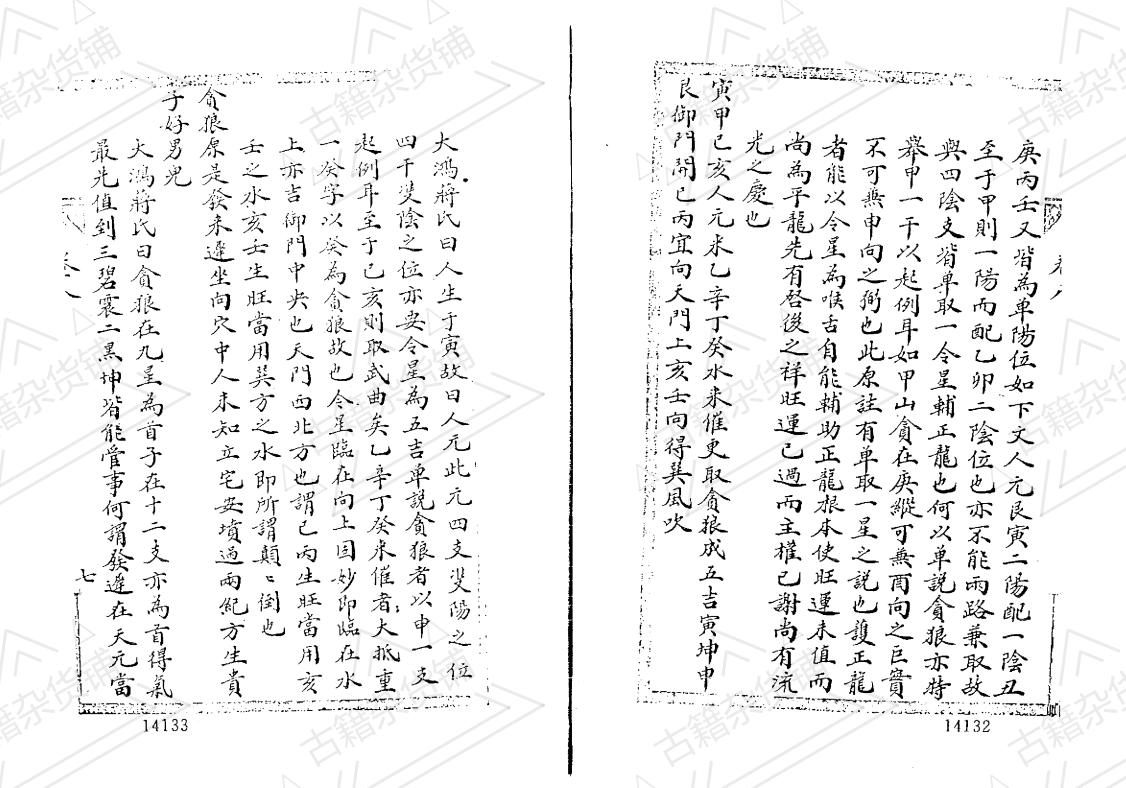 庚丙壬又皆為单陽位如下文人元艮寅二陽配一陰丑
至于甲則一陽而配乙卯二陰位也亦不能兩路兼取故
與四陰支皆单取一令星輔正龍也何以单説貪狼亦特
舉甲一干以起例耳如甲山貪在庚縱可無酉向之巨實
不可無申向之弼也此原註有单取一星之説也護正龍
者能以令星為喉舌自能輔助正龍根本使旺運未值而
尚為平龍先有啓後之祥旺運已過而主權已謝尚有流
光之慶也
寅甲巳亥人元來乙辛丁癸水來催更取貪狼成五吉寅坤申
艮御門開巳丙宜向天門上亥壬向得巽風吹
卷八
14132
大鴻蔣氏曰人生于寅故曰人元此元四支雙陽之位
四干雙陰之位亦安令星為五吉单説貪狼者以申一支
起例耳至于巳亥則取武曲矣乙辛丁癸來催者大抵重
一癸字以癸為貪狼故也令星臨在向上固妙即臨在水
上亦吉御門中央也天門西北方也謂巳丙生旺當用亥
壬之水亥壬生旺當用巽方之水即所謂顛〻倒也
貪狼原是發来遲坐向穴中人未知立宅安墳過兩紀方生貴
子好男兒
大鴻蔣氏曰貪狼在九星為首子在十二支亦為首得氣
最先值到三碧震二黑坤皆能管事何謂發遲在天元當
卷八
七
14133
古籍杂货铺